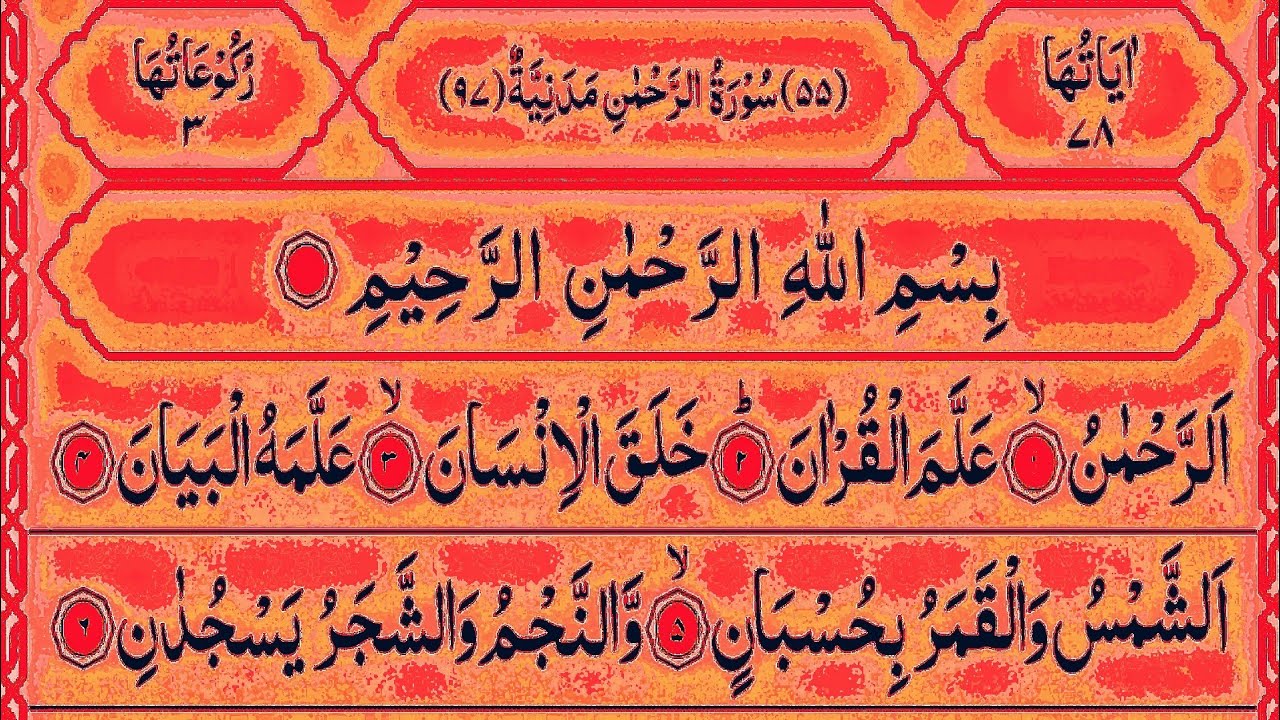 اٰيَاتُهَا ٧٨ (۵۵) سُوْرَةُ الرَّحْمٰنِ مَدَنِيَّةٌ (٩٧) رُكُوْعَاتُهَا ٣
بِسْمِ اللّٰهِ الرَّحْمٰنِ الرَّحِيْمِ
اَلرَّحْمٰنُ ۙ۱ عَلَّمَ الْقُرْاٰنَ ؕ۲ خَلَقَ الْاِنْسَانَ ۙ۳ عَلَّمَهُ الْبَيَانَ ۴
اَلشَّمْسُ وَالْقَمَرُ بِحُسْبَانٍ ۙ۵ وَّالنَّجْمُ وَالشَّجَرُ يَسْجُدٰنِ ۶